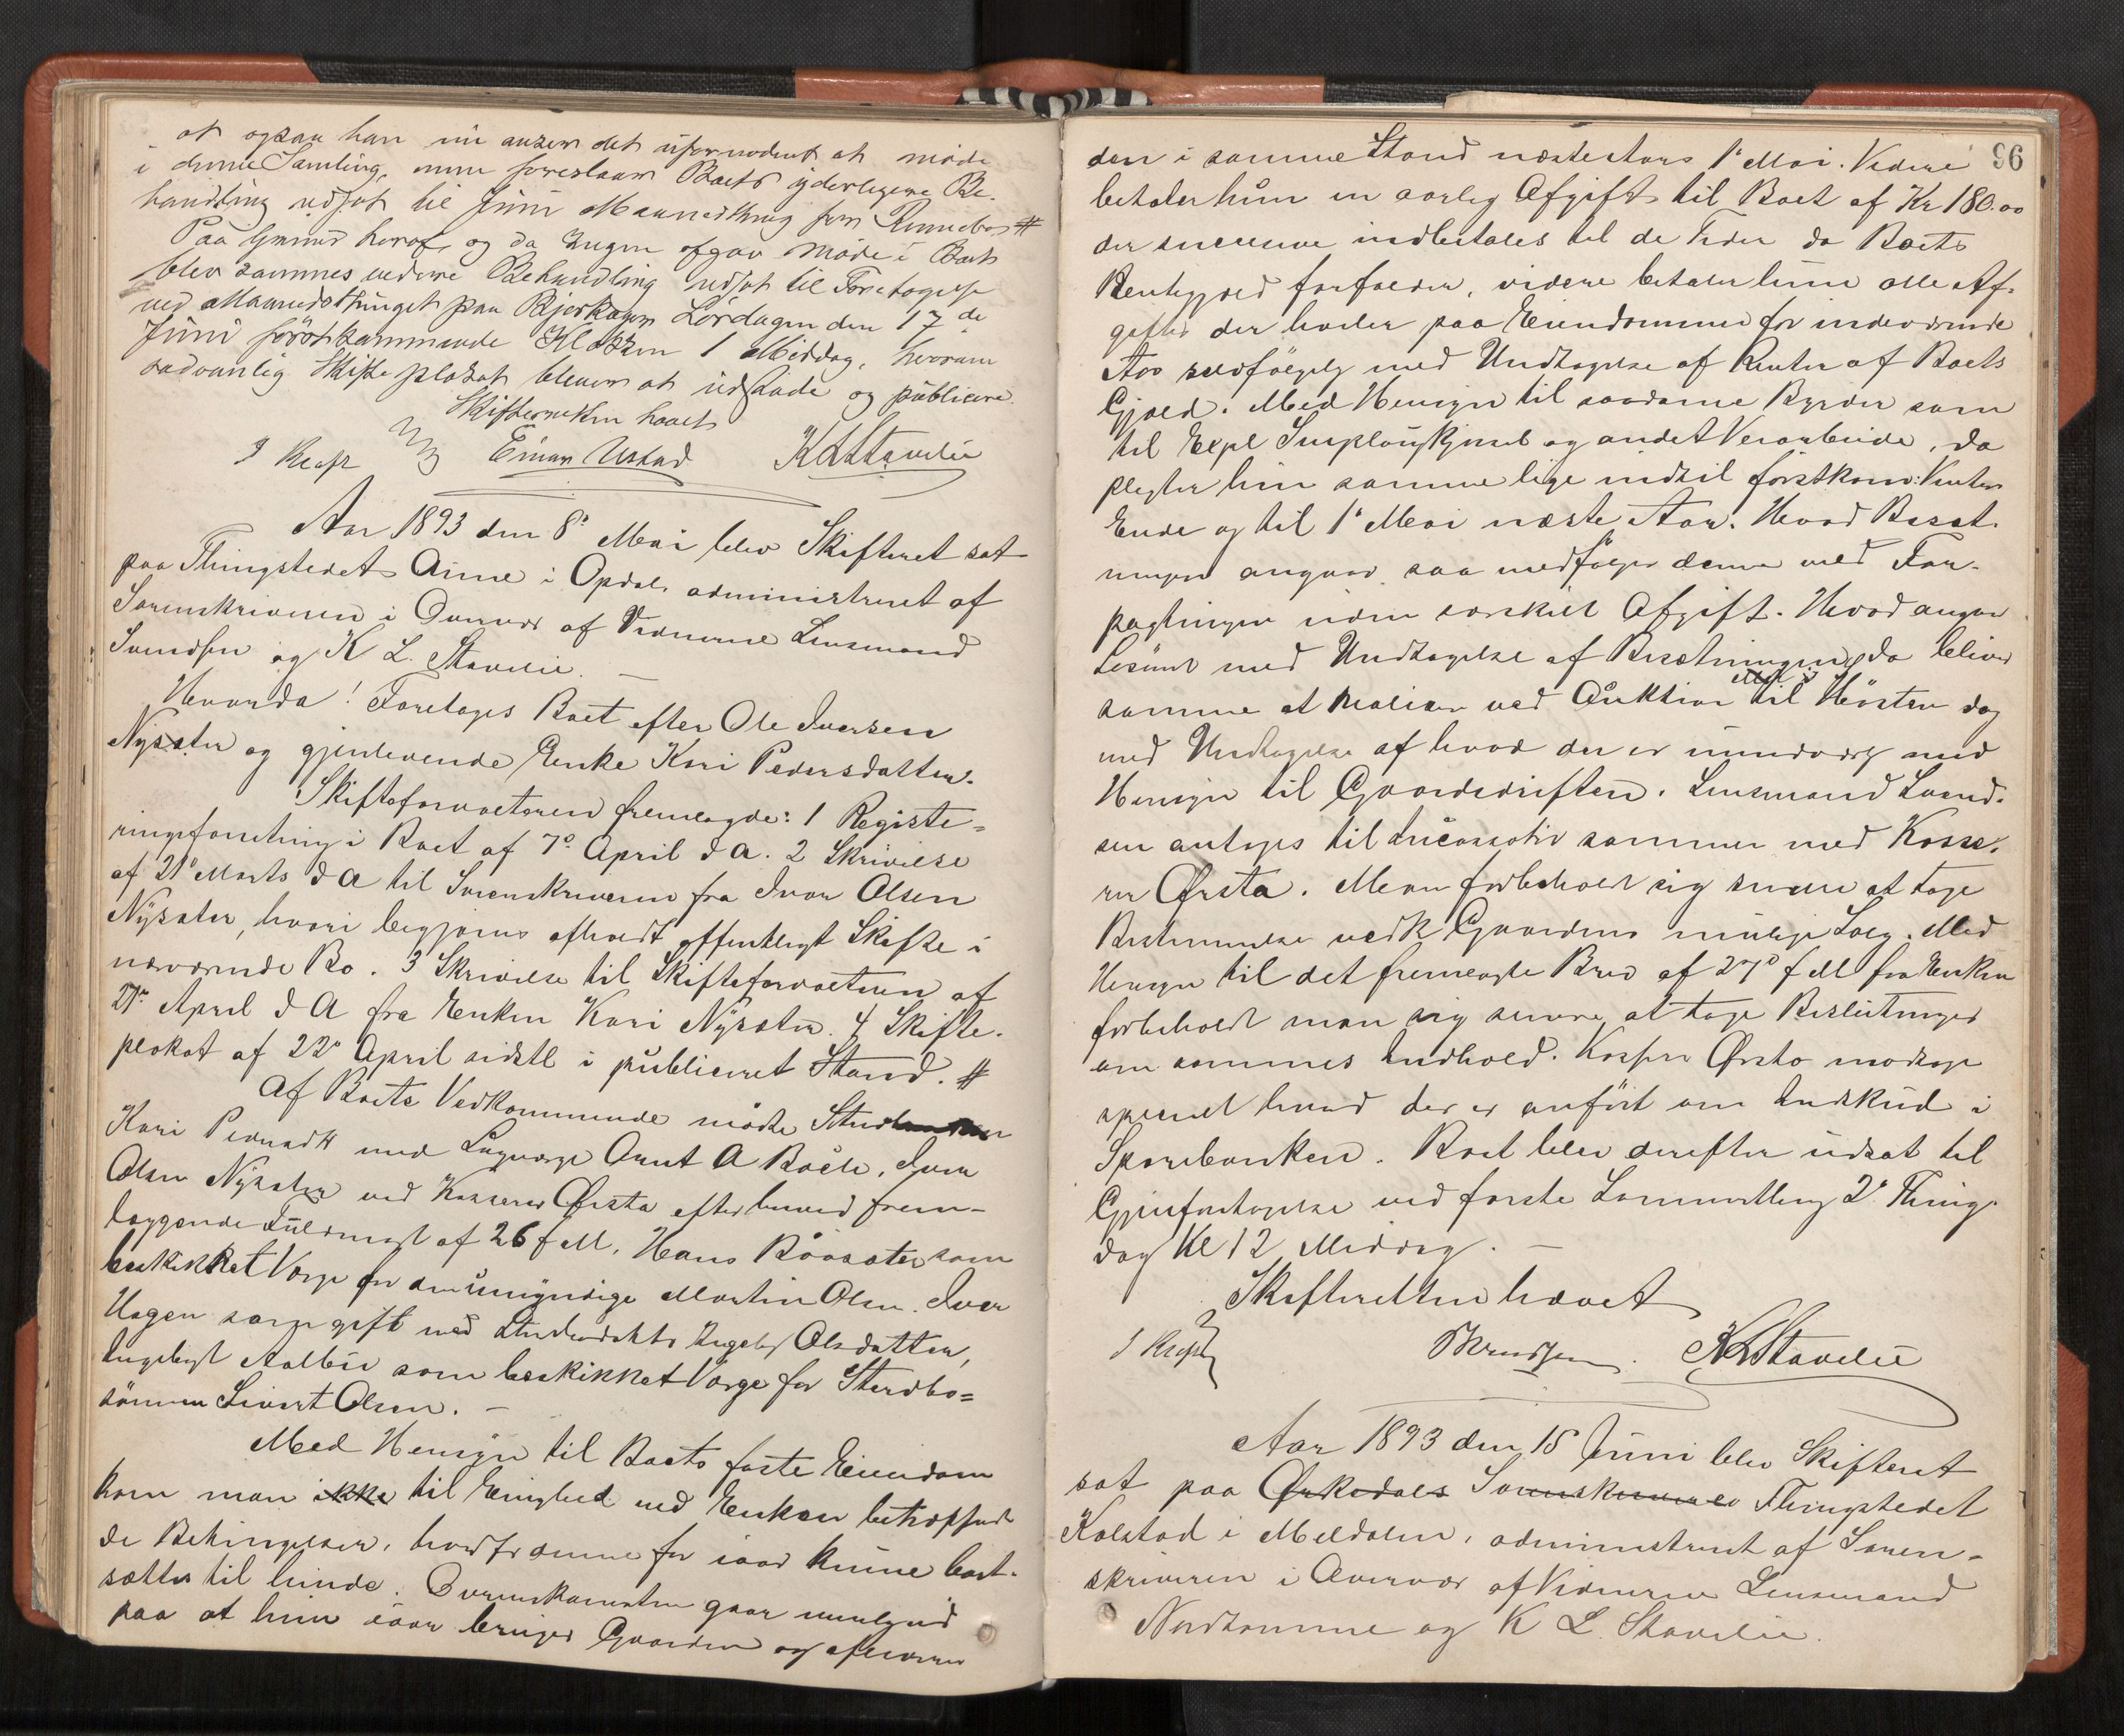 at ogsaa han nu anser det ufornødent at møde
i denne Samling, men foreslaar Boets yderligere Be-
handling udsat til Juni Maanedthing for Rennebo #
Paa Grund heraf og da Ingen afgav Møde i Boet
blev sammes videre Behandling udsat til Foretagelse
ved Maanedsthinget paa Bjerkager Lørdagen den 17de
Juni førstkommende Klokken 1 Middag, hvorom
sædvanlig Skifteplakat bliver at udstæde og publicere.
Skifteretten hævet
J Krafft Einar Ustad K L Stavelie
Aar 1893 den 8de Mai blev Skifteret sat
paa Thingstedet Aune i Opdal, administreret af
Sorenskriveren i Overvær af Vidnerne Lensmand
Svendsen og K L. Stavelie. —
Hvorda! Foretages Boet efter Ole Iversen
Nysæter og gjenlevende Enke Kari Pedersdatter.
Skifteforvalteren fremlagde: 1 Registe-
ringsforretning i Boet af 7de April d A. 2 Skrivelse
af 21de Marts d A til Sorenskriveren fra Ivar Olsen
Nysæter, hvori begjæres afholdt offentligt Skifte i
nærværende Bo. 3 Skrivelse til Skifteforvalteren af
27de April d A fra Enken Kari Nysæter. 4 Skifte-
plakat af 22de April sidstl i publiceret Stand. #
Af Boets Vedkommende mødte
Kari Pedersdtr med Laugværge Arnt A Böele, Iver
Olsen Nysæter ved Kasserer Ørsta efter herved frem-
læggende Fuldmagt af 26 f M. Hans Böasæter som
beskikket Værge for den umyndige Martin Olsen. Iver
Hagen som gift med Ingeborg Olsdatter,
Ingebrigt Aalbu som beskikket Værge for Sterbo-
sønnen Sivert Olsen. —
Med Hensyn til Boets faste Eiendom
kom man ikke til Enighed med Enken betræffen-
de Betingelser, hvorfor denne for iaar kunne bort-
sættes til hende. Overenskomsten gaar
paa at hun iaar bruger Gaarden og afleverer
96
den i samme Stand næstestaars 1de Mai. Videre
betaler hun en aarlig Afgift til Boet af Kr 180.00
der successive indbetales til de Tider da Boets
Rentegjæld forfalder, videre betaler hun alle Af-
gifter der hviler paa Eiendommen for indeværende
Aar selvfølgelig med Undtagelse af Renter af Boets
Gjæld. Med Hensyn til saadanne Byrder som
til Expl Sneplougkjørsel og andet Veiarbeide, da
pligter hun samme lige indtil førstkom: Vinters
Ende og til 1de Mai næste Aar. Hvad Besæt-
ningen angaar, saa medfølger denne med For-
pagtningen uden særskilt Afgift. Hvad angaar
Løsøret med Undtagelse af Besætningen, da bliver
samme at realisere ved Auktion til Høsten dog
med Undtagelse af hvad der er nødvendig med
Hensyn til Gaardsdriften. Lensmand Svend-
sen antages til Incassator sammen med Kasse-
rer Ørsta. Man forbeholdt sig senere at tage
Bestemmelse vedk Gaardens mulige Salg. Med
Hensyn til det fremlagte Brev af 27de f M fra Enken
forbeholdt man sig senere at tage Beslutninger
om sammes Indhold. Kasserer Ørsta modsagde
specielt hvad der er anført om Indskud i
Sparebanken. Boet blev derefter udsat til
Gjenforetagelse ved første Sommerthing 2de Thing-
dag Kl 12 Middag. —
Skifteretten hævet
J Krafft Svendsen. K L Stavelie
Aar 1893 den 15 Juni blev Skifteret
sat paa Ørkedals Sorenskriveres Thingstedet
Kalstad i Meldalen, administreret af Soren-
skriveren i Overvær af Vidnerne Lensmand
Nordtømme og K L. Stavelie.